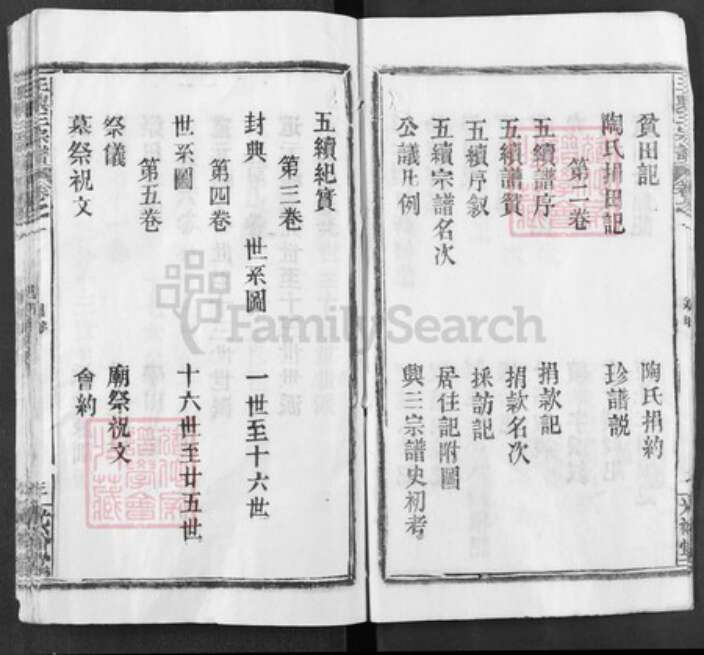 貧田記 陶氏捐約
陶氏捐田記 珍譜說
第二卷
五續譜序 捐款記
五續譜贊 捐款名次
五續序叙 採訪記
五續宗譜名次 居住記附圖
公議凡例 興三宗譜史初考
五續紀實
第三卷
封典 世系圖 一世至十六世
第四卷
世系圖 十六世至廿五世
第五卷
祭儀 廟祭祝文
墓祭祝文 會約
FamilySearch